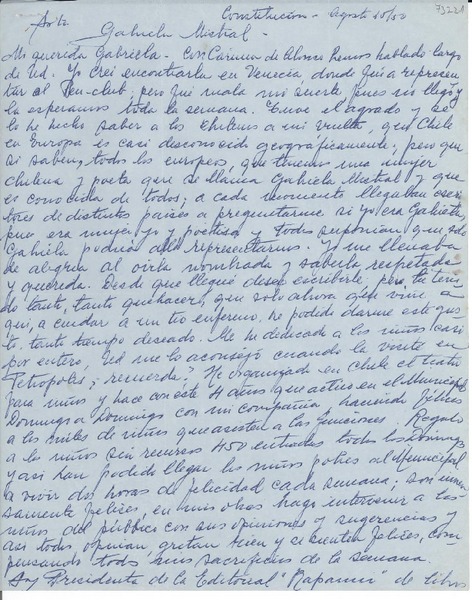 73221
Constitucion - Agosto 10/50
Srta
Gabriela Mistral -
Mi querida Gabriela - Con Carmen de Alonso hemos hablado largo
de Ud. Yo creí encontrarla en Venecia, donde fuí a represen
tar al Pen-club, pero fui mala mi suerte pues no llegó y
la esperamos toda la semana. Tuve el agrado y se
lo he hecho saber a los chilenos a mi vuelta, que Chile
en Europa es casi desconocido geográficamente, pero que
si saben, todos los europeos, que tenemos una mujer
chilena y poeta que se llama Gabriela Mistral y que
es conocida de todos; a cada momento llegaban escri
tores de distintos países a preguntarme si yo era Gabriela
pues era mujer yo y poetisa y todos suponian que solo
Gabriela podria allá representarnos. Y me llenaba
de alegria al oirla nombrada y saberla respetada
y querida. Desde que llegué deseo escribirle pero he teni
do tanto, tanto quehacer, que solo ahora que vine a
qui, a cuidar a un tio enfermo, he podido darme este gus
to tanto tiempo deseado. Me he dedicado a los niños casi
por entero, Ud me lo aconsejó cuando la visité en
Petropolis, ¿recuerda? He organizado en Chile el teatro
para niños y hace con éste 4 años que actuo en el Municipal
Domingo a Domingo con mi compañia haciendo felices
a los miles de niños que asisten a las funciones. Regalo
a los niños sin recursos 450 entradas todos los domingos
y asi han podido llegar los niños pobres al Municipal
a vivir dos horas de felicidad cada semana; son inmen
samente felices, en mis obras hago intervenir a los
niños del público con sus opiniones y sugerencias y
asi todos opinan, gritan, rien y se sienten felices, com
pensando todos mis sacrificios de la semana.
Soy Presidenta de la Editorial "Rapanui" de libros